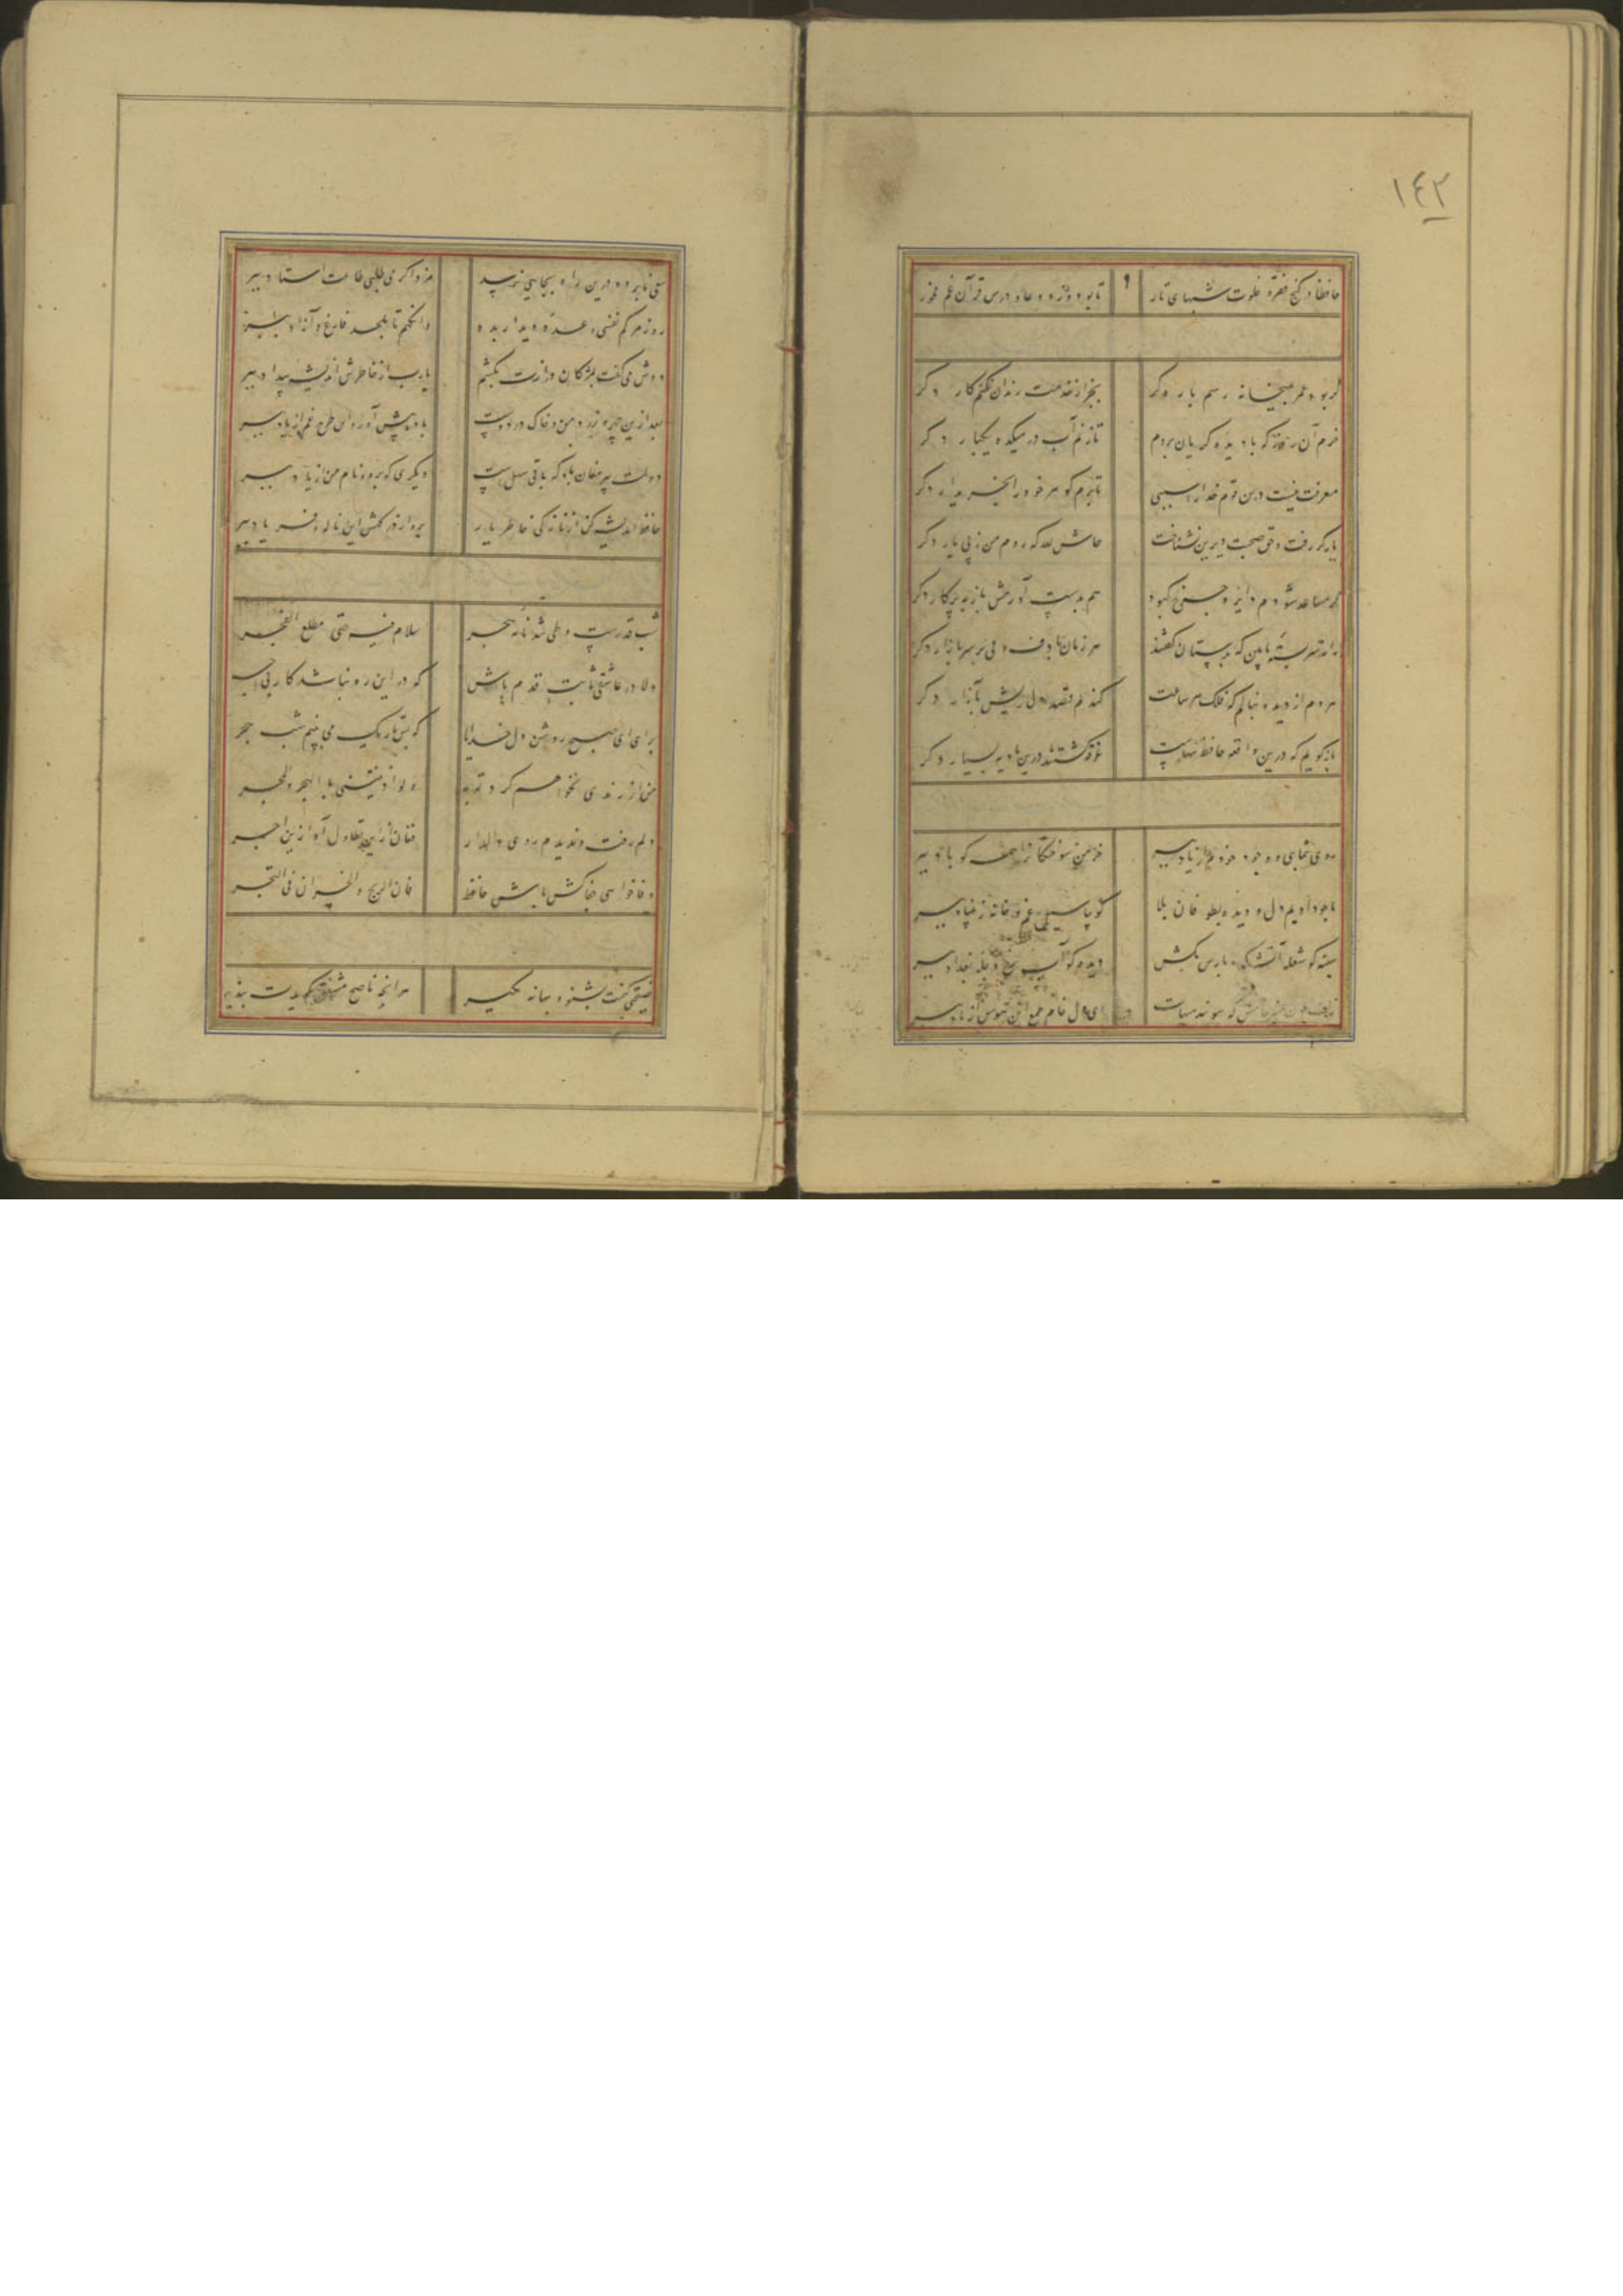 ١٤٢
حافظا در کنج فقر و خلوت شبهای تار تا بود وردت دعا و درس قرآن غم مخور
گر بود عمر بمیخانه رسم بار دگر بجز از خدمت رندان نکنم کار دگر
خرم آن روز که با دیده گریان بروم تا زنم آب در میکده یکبار دگر
معرفت نیست درین قوم خدا را سببی تا برم گوهر خود را بخریدار دگر
یار گر رفت و حق صحبت دیرین نشناخت حاش لله که روم من ز پی یار دگر
گر مساعد شودم دایره چرخ کبود هم بدست آورمش باز بپرکار دگر
راز سربسته ما بین که بدستان گفتند هر زمان با دف و نی بر سر بازار دگر
هر دم از دیده بنالم که فلک هر ساعت کندم قصد دل ریش بآزار دگر
باز گویم که درین واقعه حافظ تنهاست غرقه گشتند درین بادیه بسیار دگر
روی بنمای و وجود خودم از یاد ببر خرمن سوختگان را همه گو باد ببر
ما چو دادیم دل و دیده بطوفان بلا گو بیا سیل غم و خانه ز بنیاد ببر
سینه گو شعله آتشکده پارس بکش دیده گو آب رخ دجله بغداد ببر
زلف چون عنبر خامش که ببوید هیهات ای دل خام طمع این هوس از یاد ببر
سعی نابرده درین راه بجایی نرسد مزد اگر می‌طلبی طاعت استاد ببر
روز مرگم نفسی وعده دیدار بده وانگهم تا بلحد فارغ و آزاد ببر
دوش می‌گفت بمژگان درازت بکشم یارب از خاطرش اندیشه بیداد ببر
بعد ازین چهره زرد من و خاک در دوست باده پیش آور و این غم از یاد ببر
دولت پیر مغان باد که باقی سهلست دیگری گو برو و نام من از یاد ببر
حافظ اندیشه کن از نازکی خاطر یار برو از درگهش این ناله و فریاد ببر
شب قدرست و طی شد نامه هجر سلام فیه حتی مطلع الفجر
دلا در عاشقی ثابت قدم باش که در این ره نباشد کار بی اجر
برآی ای صبح روشن دل خدا را که بس تاریک می بینم شب هجر
من از رندی نخواهم کرد توبه ولو آذیتنی بالهجر والحجر
دلم رفت و ندیدم روی دلدار فغان از این تطاول آه ازین اجر
وفا خواهی جفاکش باش حافظ فان الربح والخسران فی التجر
نصیحتی کنمت بشنو و بهانه مگیر هر آنچه ناصح مشفق بگویدت بپذیر